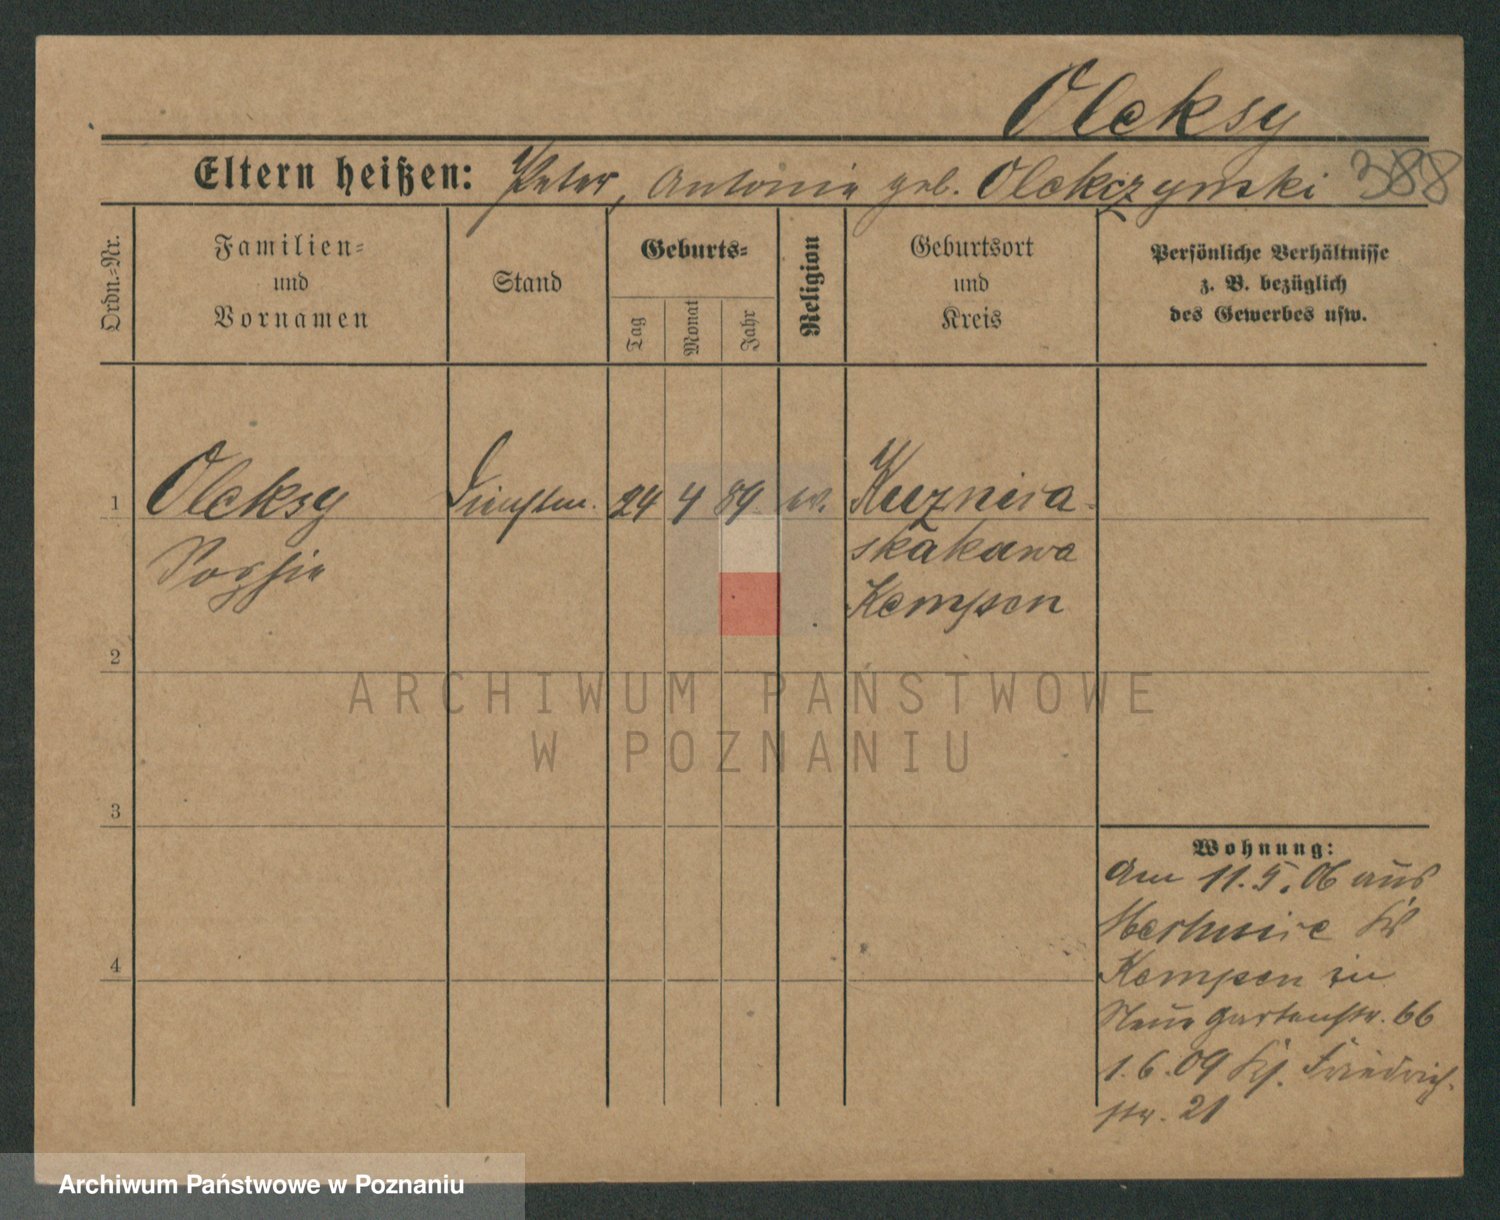 Oleksy
Eltern heißen: Peter, Antonie geb. Olekczynski 388
Ordn.-Nr.
Familien-
und
Vornamen
Stand
Geburts-
Tag
Monat
Jahr
Religion
Geburtsort
und
Kreis
Persönliche Verhältnisse
z. B. bezüglich
des Gewerbes usw.
1 Oleksy 24 4 89 Kuznica-
Sophie skakawa
Kempen
2
ARCHIWUM PAŃSTWOWE
W POZNANIU
3
Wohnung:
Am 11.5.06 aus
4
Kempen in
Neue Gartenstr. 66
1.6.09 Friedrich-
str. 21
Archiwum Państwowe w Poznaniu